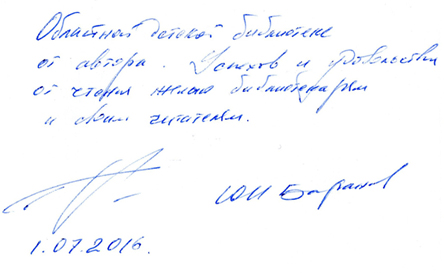 Областной детской библиотеке
от автора. Успехов и удовольствия
от чтения желаю библиотекарям
и своим читателям.
Ю И Баранов
1.07.2016.